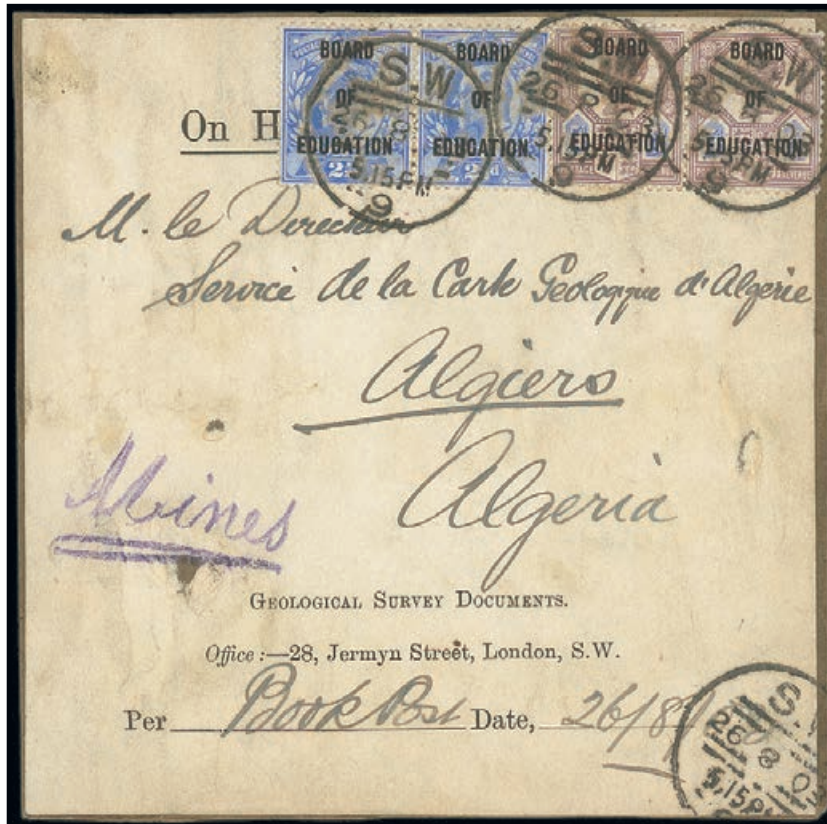 BOARD OF EDUCATION BOARD OF EDUCATION BOARD OF EDUCATION BOARD OF EDUCATION
S.W 26 8 03 5.15PM 9
On H
M. le Directeur
Service de la Carte Geologique d'Algerie
Algiers
Algeria
Mines
GEOLOGICAL SURVEY DOCUMENTS.
Office:—28, Jermyn Street, London, S.W.
Per Book Post Date, 26/8/
S.W 26 8 03 5.15PM